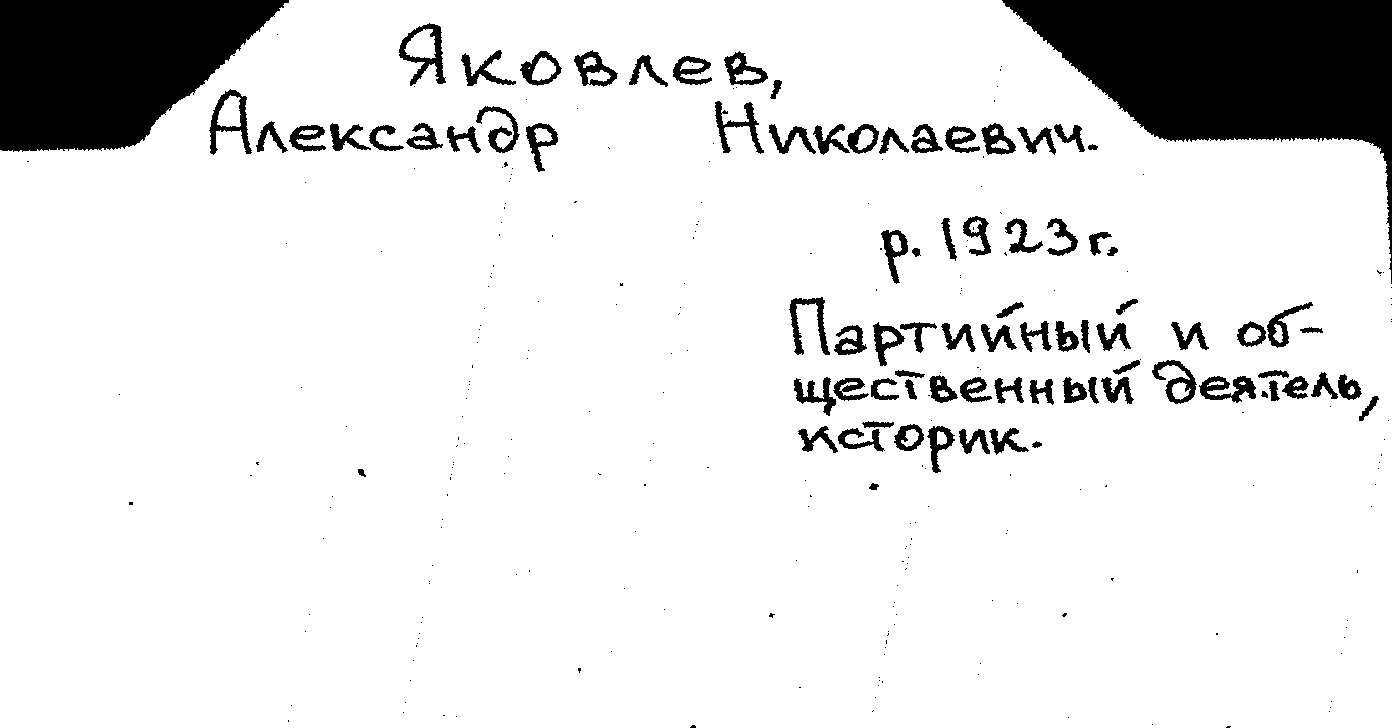 Яковлев,
Александр Николаевич.
р. 1923 г.
Партийный и об-
щественный деятель,
историк.